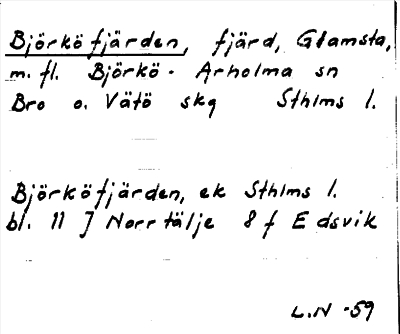 Björköfjärden, fjärd, Glamsta,
m. fl. Björkö - Arholma sn
Bro o. Vätö skg Sthlms l.
Björköfjärden, ek Sthlms l.
bl. 11 J Norrtälje 8 f Edsvik
L.N -59